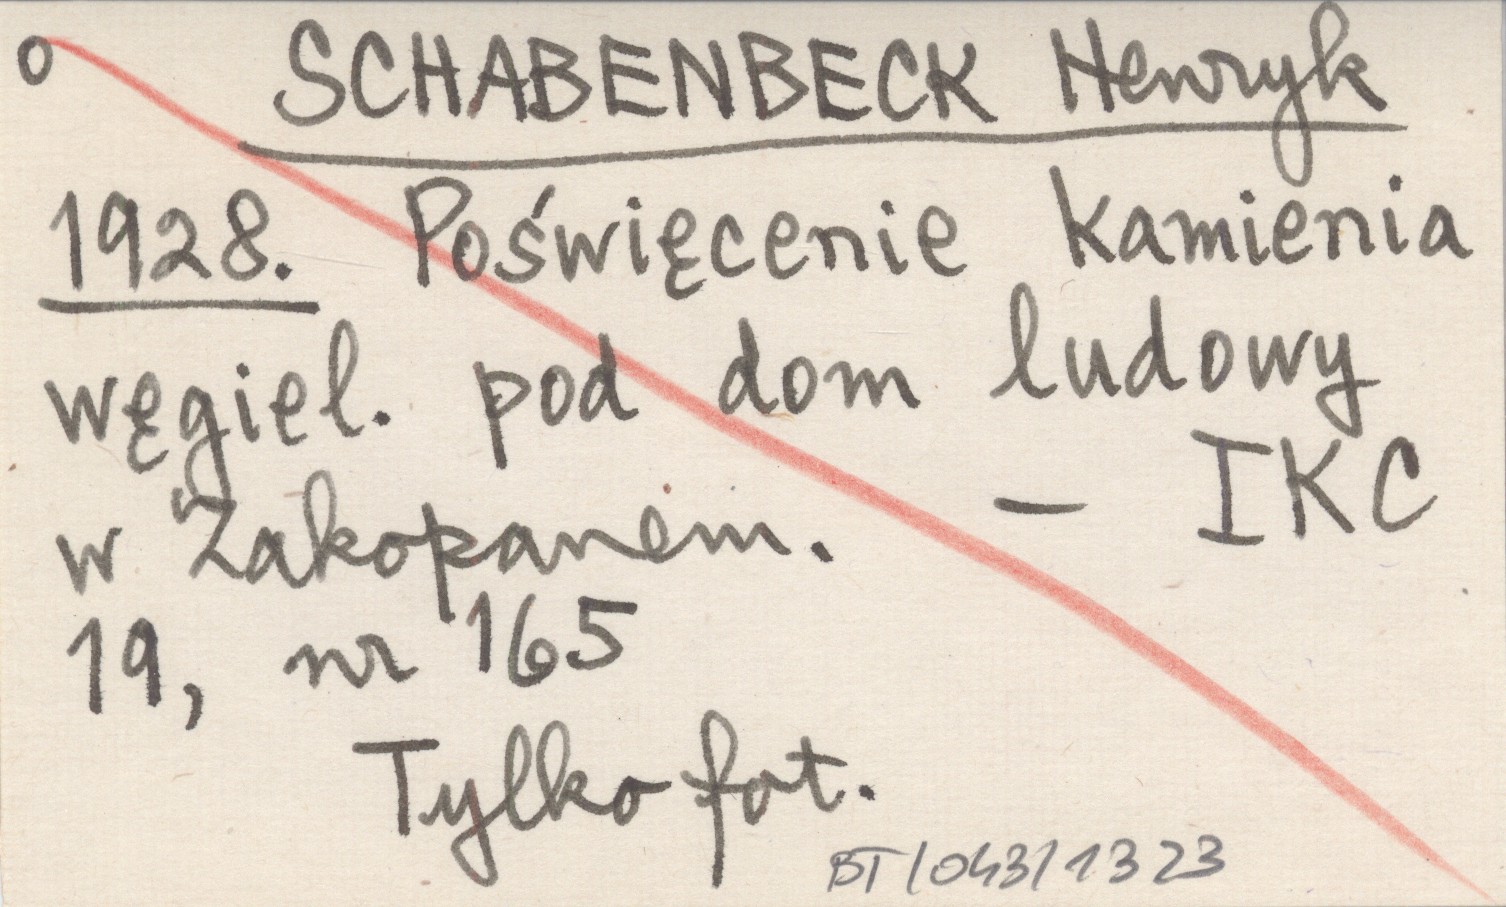 o SCHABENBECK Henryk
1928. Poświęcenie kamienia
węgiel. pod dom ludowy
w Zakopanem. — IKC
19, nr 165
Tylko fot.
BT/043/1323